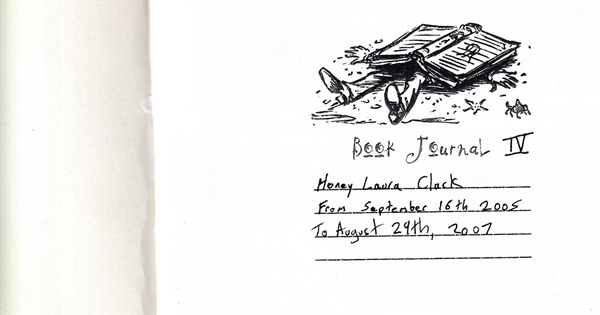 Book Journal IV
Honey Laura Clack
From September 16th 2005
To August 29th, 2007